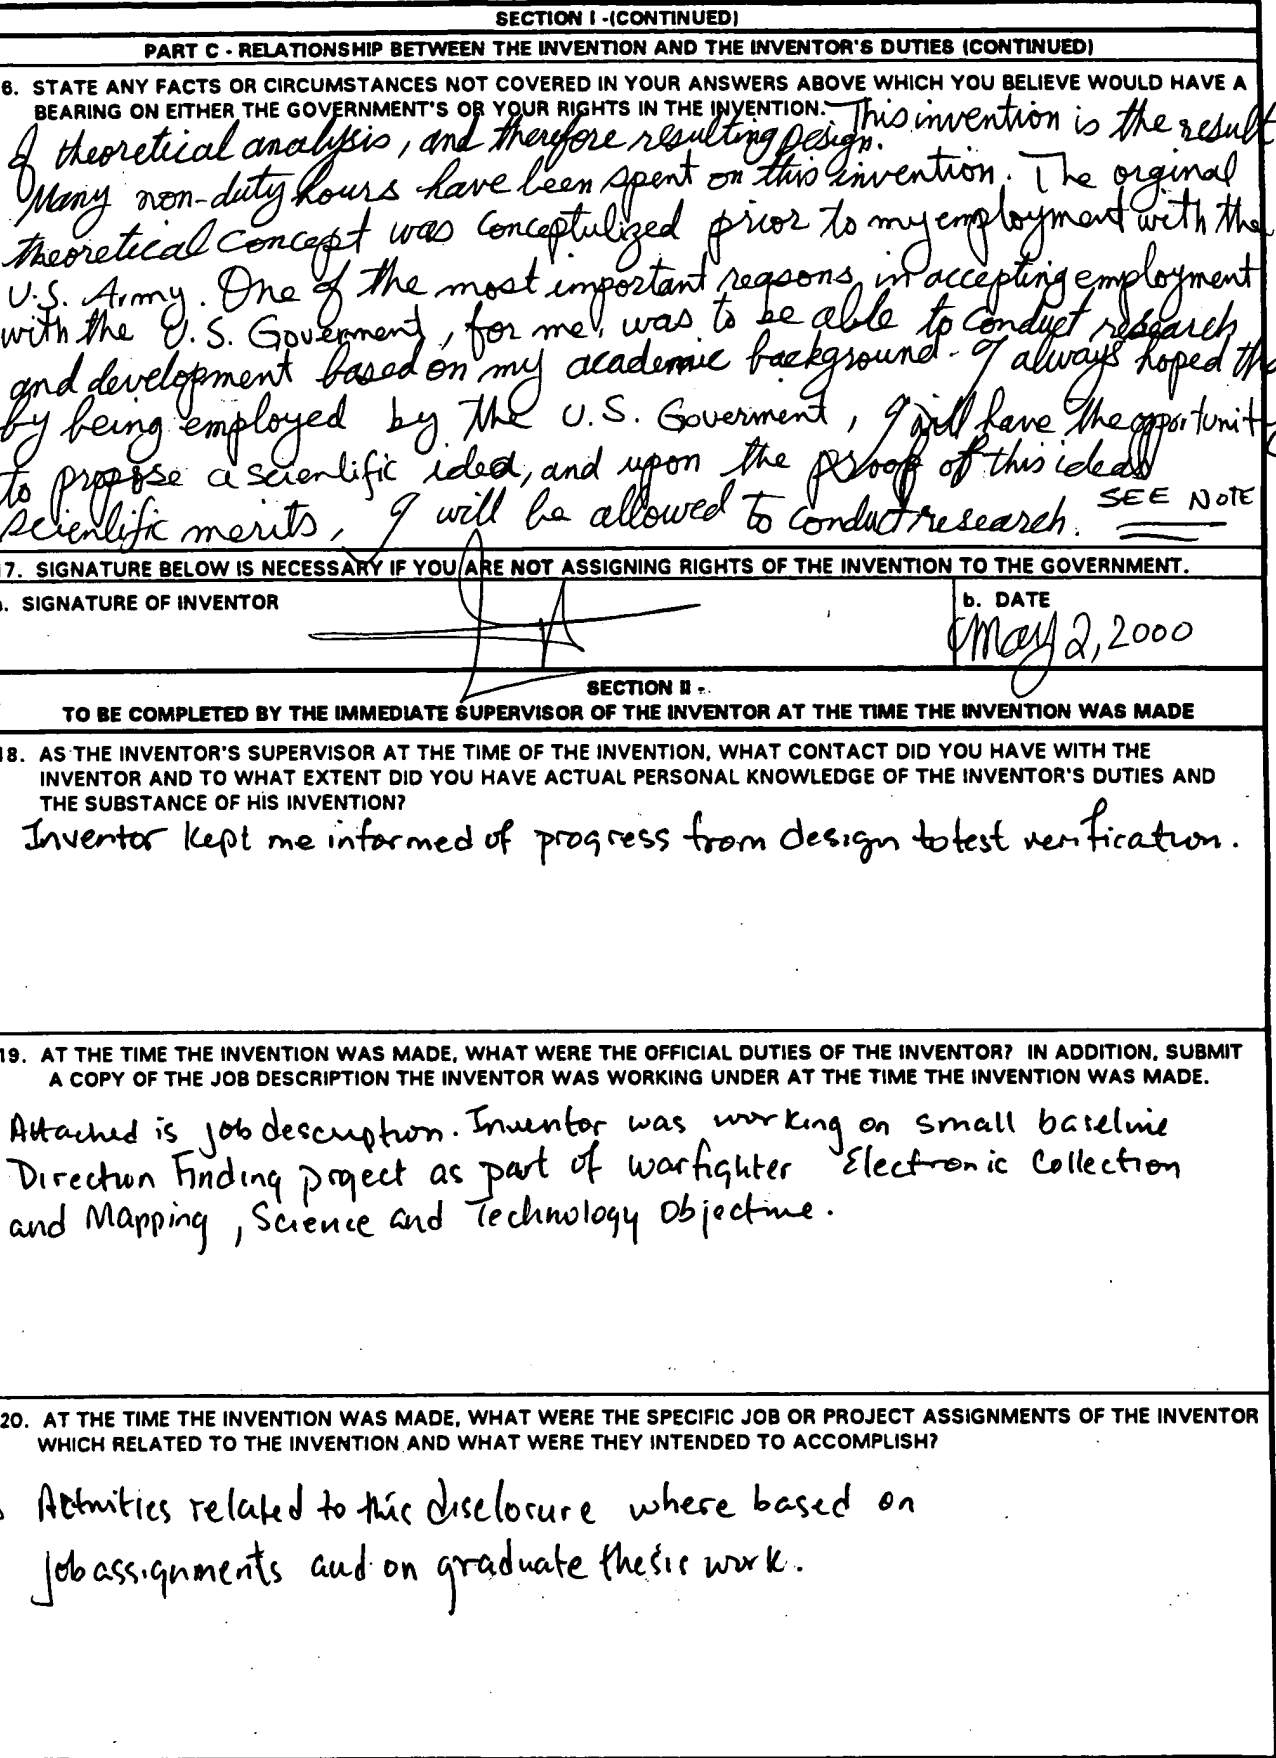 SECTION I -(CONTINUED)
PART C - RELATIONSHIP BETWEEN THE INVENTION AND THE INVENTOR'S DUTIES (CONTINUED)
6. STATE ANY FACTS OR CIRCUMSTANCES NOT COVERED IN YOUR ANSWERS ABOVE WHICH YOU BELIEVE WOULD HAVE A
BEARING ON EITHER THE GOVERNMENT'S OR YOUR RIGHTS IN THE INVENTION. This invention is the result
of theoretical analysis, and therefore resulting Design.
Many non-duty hours have been spent on this invention. The orginal
theoretical concept was conceptulized prior to my employment with the
U.S. Army. One of the most important reasons, in accepting employment
with the U.S. Goverment, for me, was to be able to conduct research
and development based on my academic background. I always hoped tha
by being employed by the U.S. Goverment, I will have the opportunity
to propose a scientific idea, and upon the proof of this ideas
scientific merits, I will be allowed to conduct research. SEE NOTE
7. SIGNATURE BELOW IS NECESSARY IF YOU ARE NOT ASSIGNING RIGHTS OF THE INVENTION TO THE GOVERNMENT.
. SIGNATURE OF INVENTOR
b. DATE
May 2, 2000
SECTION II -
TO BE COMPLETED BY THE IMMEDIATE SUPERVISOR OF THE INVENTOR AT THE TIME THE INVENTION WAS MADE
18. AS THE INVENTOR'S SUPERVISOR AT THE TIME OF THE INVENTION, WHAT CONTACT DID YOU HAVE WITH THE
INVENTOR AND TO WHAT EXTENT DID YOU HAVE ACTUAL PERSONAL KNOWLEDGE OF THE INVENTOR'S DUTIES AND
THE SUBSTANCE OF HIS INVENTION?
Inventor kept me informed of progress from design to test verification.
19. AT THE TIME THE INVENTION WAS MADE, WHAT WERE THE OFFICIAL DUTIES OF THE INVENTOR? IN ADDITION, SUBMIT
A COPY OF THE JOB DESCRIPTION THE INVENTOR WAS WORKING UNDER AT THE TIME THE INVENTION WAS MADE.
Attached is job description. Inventor was working on small baseline
Direction Finding project as part of warfighter Electronic Collection
and Mapping, Science and Technology Objective.
20. AT THE TIME THE INVENTION WAS MADE, WHAT WERE THE SPECIFIC JOB OR PROJECT ASSIGNMENTS OF THE INVENTOR
WHICH RELATED TO THE INVENTION AND WHAT WERE THEY INTENDED TO ACCOMPLISH?
Activities related to this disclosure where based on
job assignments and on graduate thesis work.